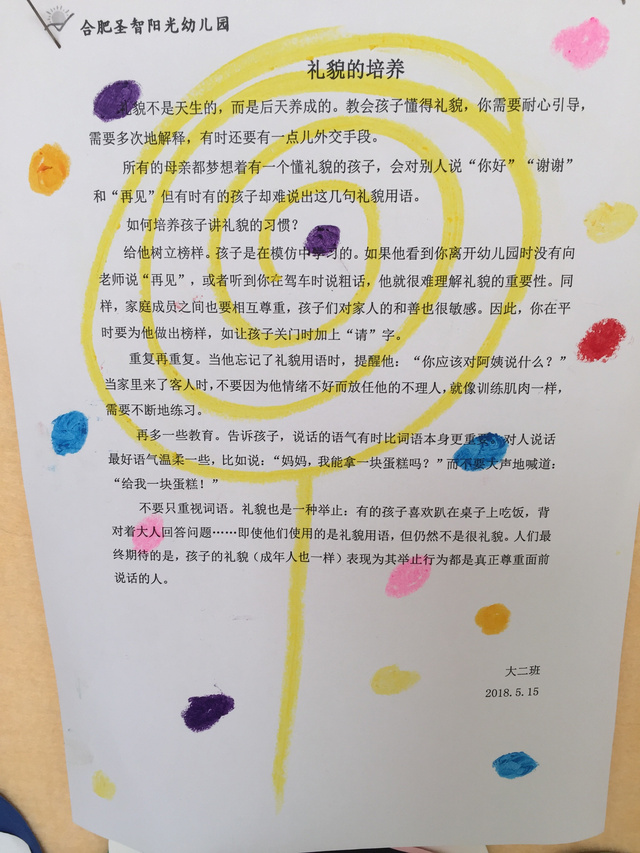 合肥圣智阳光幼儿园
礼貌的培养
礼貌不是天生的，而是后天养成的。教会孩子懂得礼貌，你需要耐心引导，
需要多次地解释，有时还要有一点儿外交手段。
所有的母亲都梦想着有一个懂礼貌的孩子，会对别人说“你好”“谢谢”
和“再见”但有时有的孩子却难说出这几句礼貌用语。
如何培养孩子讲礼貌的习惯？
给他树立榜样。孩子是在模仿中学习的。如果他看到你离开幼儿园时没有向
老师说“再见”，或者听到你在驾车时说粗话，他就很难理解礼貌的重要性。同
样，家庭成员之间也要相互尊重，孩子们对家人的和善也很敏感。因此，你在平
时要为他做出榜样，如让孩子关门时加上“请”字。
重复再重复。当他忘记了礼貌用语时，提醒他：“你应该对阿姨说什么？”
当家里来了客人时，不要因为他情绪不好而放任他的不理人，就像训练肌肉一样，
需要不断地练习。
再多一些教育。告诉孩子，说话的语气有时比词语本身更重要。对人说话
最好语气温柔一些，比如说：“妈妈，我能拿一块蛋糕吗？”而不要大声地喊道：
“给我一块蛋糕！”
不要只重视词语。礼貌也是一种举止：有的孩子喜欢趴在桌子上吃饭，背
对着大人回答问题……即使他们使用的是礼貌用语，但仍然不是很礼貌。人们最
终期待的是，孩子的礼貌（成年人也一样）表现为其举止行为都是真正尊重面前
说话的人。
大二班
2018.5.15